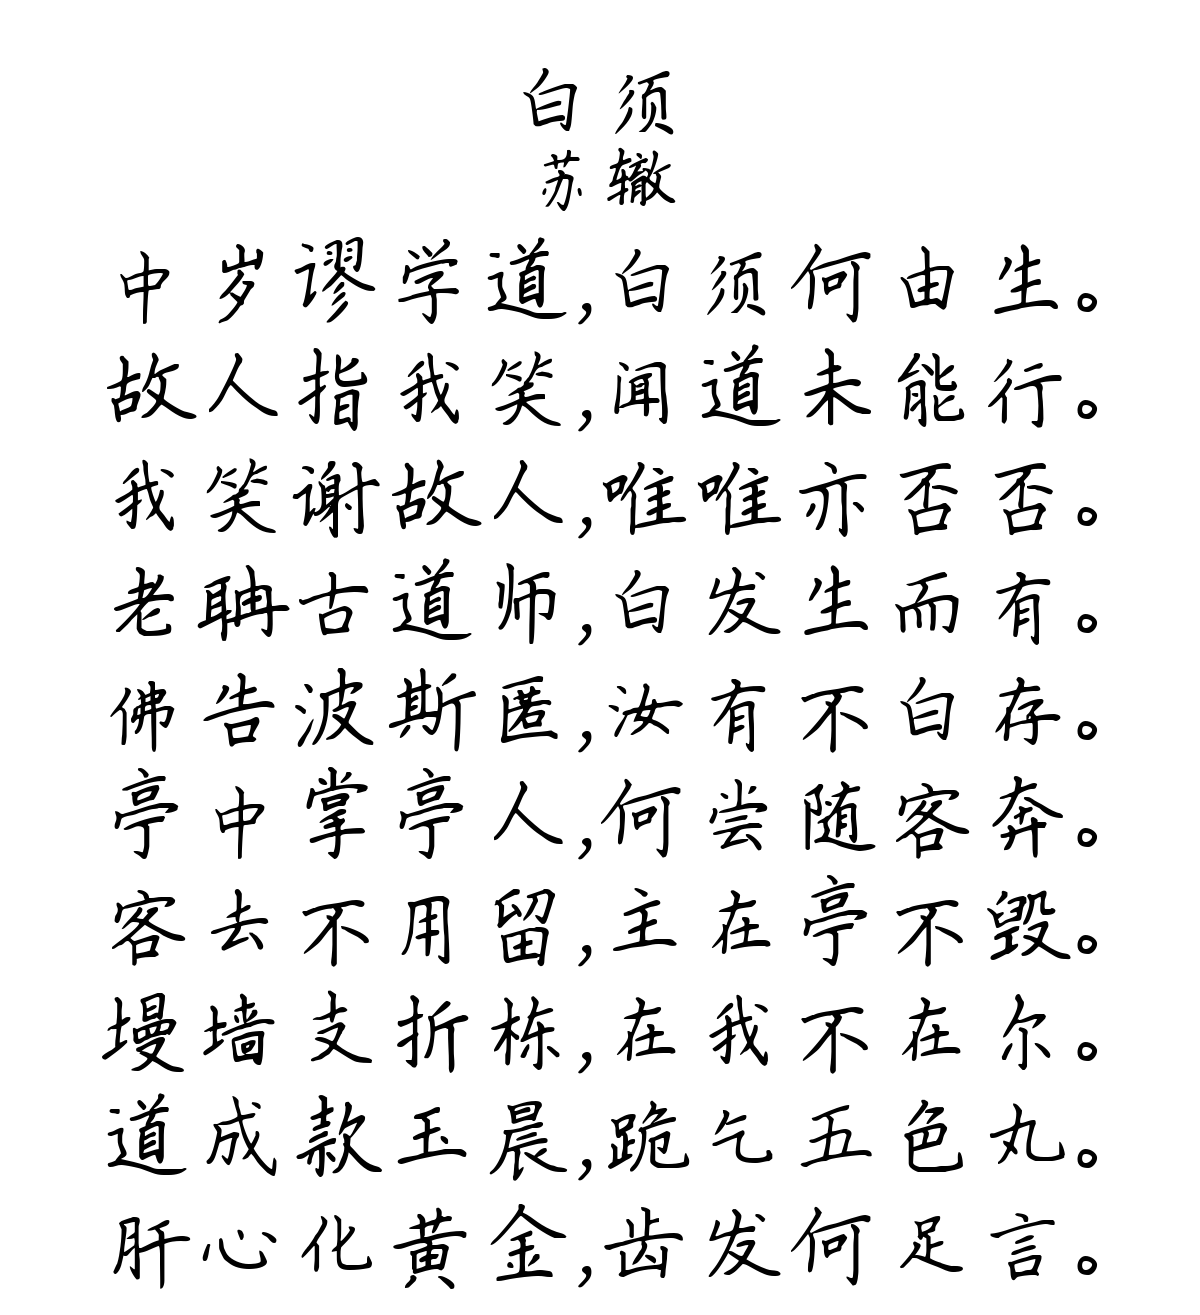 白须
苏辙
中岁谬学道,白须何由生。
故人指我笑,闻道未能行。
我笑谢故人,唯唯亦否否。
老聃古道师,白发生而有。
佛告波斯匿,汝有不白存。
亭中掌亭人,何尝随客奔。
客去不用留,主在亭不毁。
墁墙支折栋,在我不在尔。
道成款玉晨,跪乞五色丸。
肝心化黄金,齿发何足言。